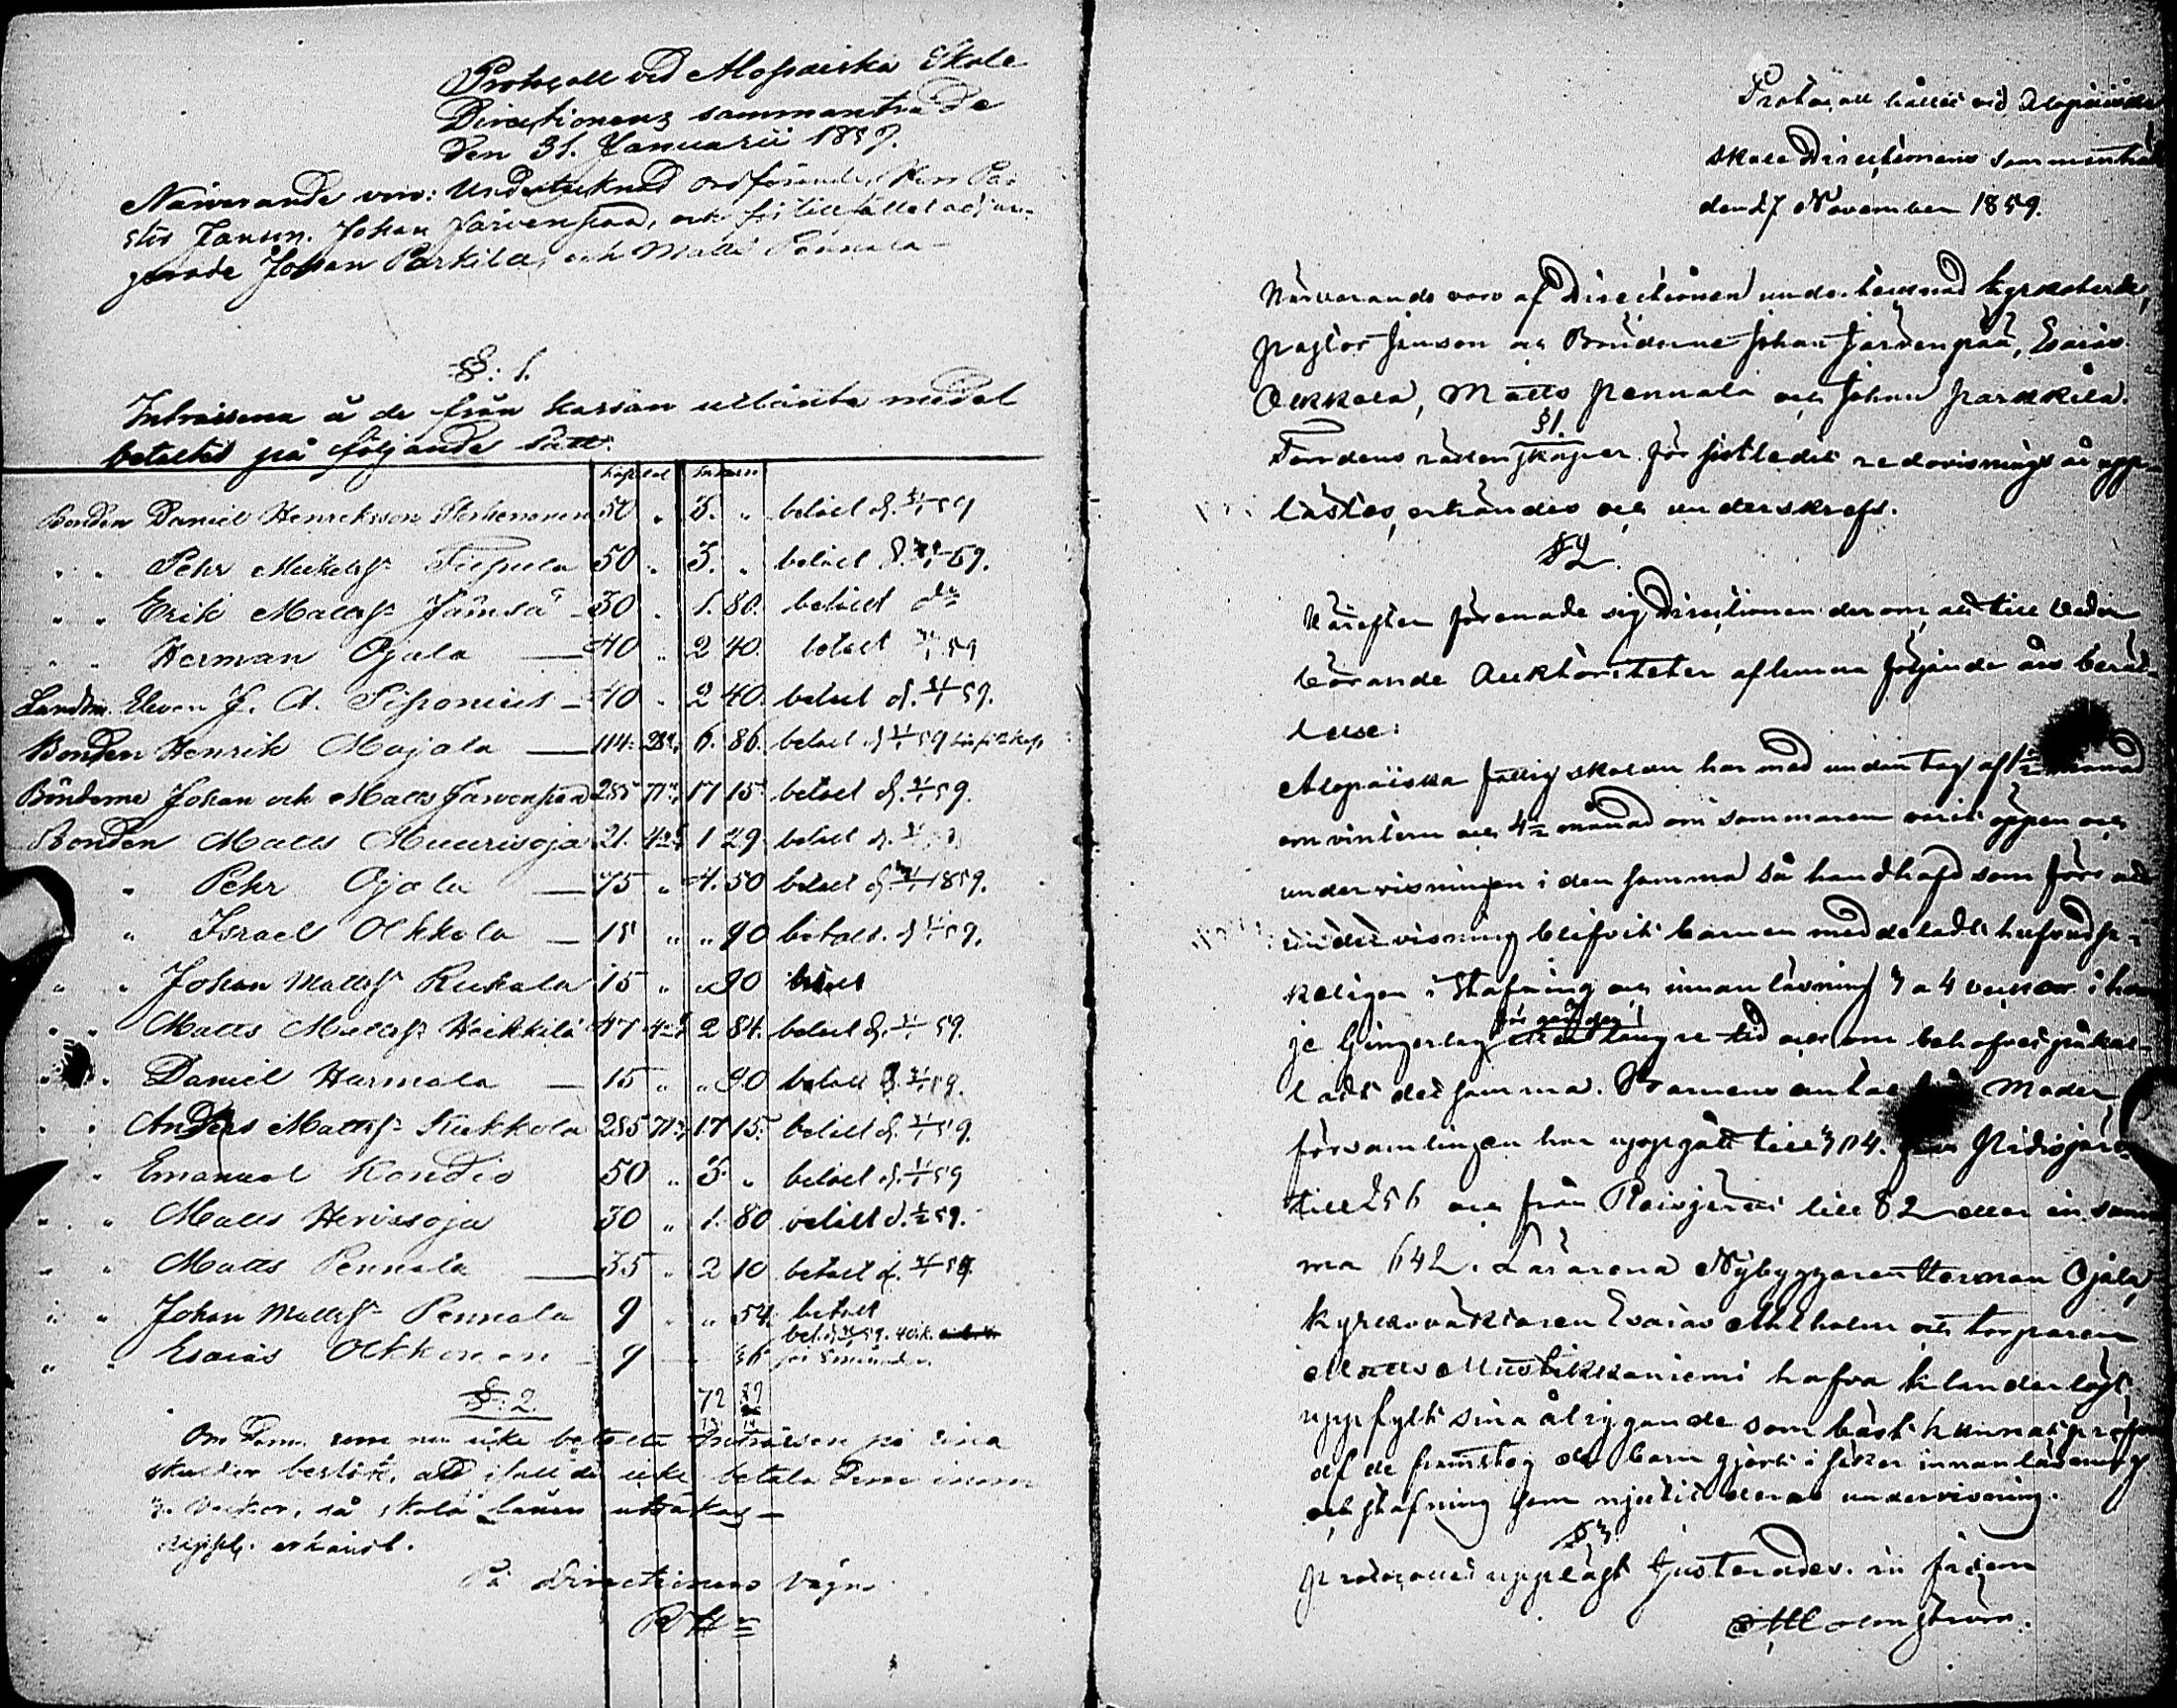 Protocoll vid Alopaeiska Skole
Directionens sammanträde
den 31. Januarii 1859.
Närvarande voro: Undertecknad ordförande, Herr Pa-
stor Janson. Johan Järvenpää, och för tillfället adjun-
gerade Johan Parkila, och Matts Pennala
§: 1.
Intressena å de från kassan utlånta medel
betaltes på följande sätt:
Kapital Intresse
Bonden Daniel Henriksson 50 " 3. " betalt d. 31/1 59
" " Pehr Mickelss: Piipula 50 " 3. " betalt d. 31/1 59.
" " Erik Matts: Jämsä 30 " 1. 80. betalt do
" " Herman Ojala — 40 " 2 40. betalt 31/1 59
Landtm. Eleven J. A. Siponius — 40 " 2 40. betalt d. 31/1 59.
Bonden Henrik Majala — 114. 28 4/7 6. 86. betalt d. 31/1 59
Bönderne Johan och Matts Järvenpää 285 71 3/7 17 15. betalt d. 31/1 59.
Bonden Matts Muurisoja 21. 42 6/7 1 29. betalt d. 31/1 59
" Pehr Ojala — 75 " 4. 50 betalt d. 31/1 1859.
" Israel Olkkola — 15 " " 90 betalt. d. 31/1 59.
" " Johan Mattss: Ruokala 15 " " 90 betalt
" " Matts Mattss: Heikkilä 47 42 6/7 2 84. betalt d. 31/1 59.
" " Daniel Harmala — 15 " " 90 betalt d. 31/1 59.
" " Anders Mattss: Kukkola 285 71 3/7 17 15. betalt d. 31/1 59.
" Emanuel Kondio 50 " 3. " betalt d. 31/1 59
" " Matts Hervasoja 30 " 1. 80 betalt d. 1/2 59.
" " Matts Pennala — 35 " 2 10 betalt d. 31/1 59.
" " Johan Mattss: Pennala 9 " " 54. betalt
" " Esaias Olkkonen — 9 — 36 bet. d. 31/1 59. 40 k.
för 8 månader.
§: 2. 72 89
Om dem, som nu icke betalte Intressen på sina
skulder beslöts, att ifall de icke betala dem inom
3. veckor, så skola lånen utsökas —
uppl. erkändt.
På Directionens vägnar
Protocoll hållet vid Alopaeiska
Skole Directionens sammanträde
den 27 November 1859.
Närvarande voro af Directionen undertecknad kyrkoherde,
Pastor Janson och Bönderne Johan Järvenpää, Esaias
Olkkola, Matts Pennala och Johan Parkkila.
§ 1.
Fondens räkenskaper för sistledet redovisnings år upp-
lästes, erkändes och underskrefs.
§ 2
Härefter förenade sig Directionen derom att till veder-
börande Auktoriteter aflemna följande års berät-
telse:
Alopaeiska fattigskolan har med undantag af 1 1/2 månad
om vintern och 4 1/2 månad om sommaren varit öppen och
undervisningen i den samma så handhafd som förr att
undervisning blifvit barnen meddeladt hufvudsa-
keligen i Stafning och innanläsning 3 a 4 veckor i hvar-
je byingerlag eller längre tid och om behofvet påkal-
för gången
ladt det samma. Barnens antal från Moder
församlingen har uppgått till 304. från Pidisjärvi
till 256 och från Reisjärvi till 82 eller in sum-
ma 642. Lärarena Nybyggaren Herman Ojala,
kyrkovaktaren Esaias Ahlholm och torparen
Matts Mustikkaniemi hafva klanderlöst
uppfyllt sina åligganden som bäst kunnat pröfvas
af de framsteg de barn gjort i säker innanläsning
och stafning som njutit deras undervisning.
§ 3
Protocollet uppläst Justerades. in fidem
Holmström.